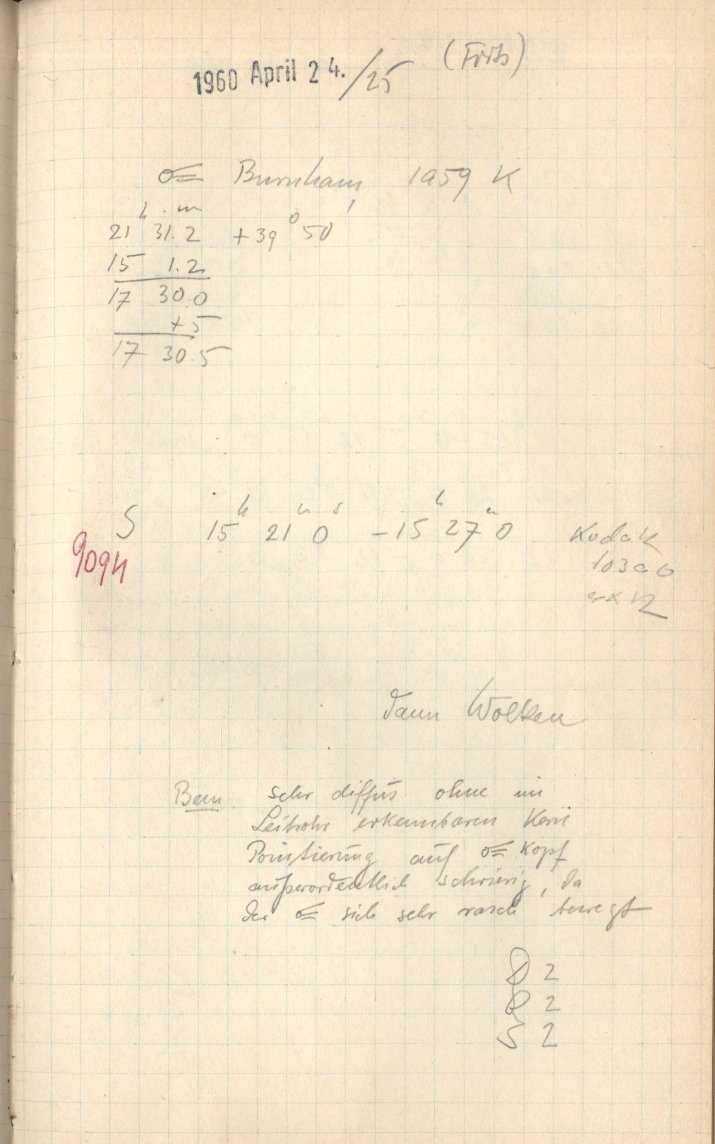 1960 April 24./25 (Förts)
☄ Burnham 1959 K
h m
21 31.2 +39° 50'
15 1.2
17 30.0
+5
17 30.5
S 15h 21m 0s -15h 27m 0 Kodak
9094 103a0
9x12
dann Wolken
Bem. sehr diffus ohne im
Leitrohr erkennbaren Kern
Pointierung auf ☄ Kopf
außerordentlich schwierig, da
der ☄ sich sehr rasch bewegt
D 2
R 2
S 2